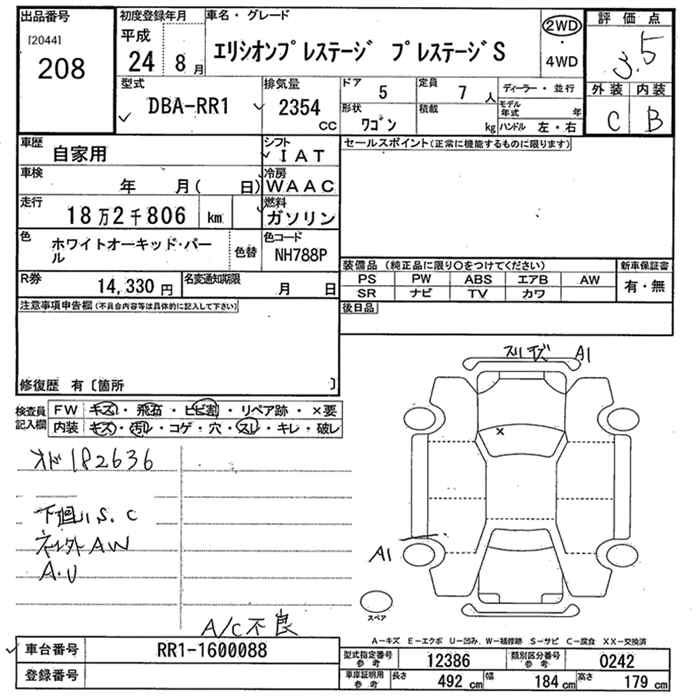 出品番号
[2044]
208
初度登録年月
平成
24年8月
車名・グレード
エリシオンプレステージ プレステージS
2WD
・
4WD
評価点
3.5
外装 内装
C B
型式
DBA-RR1
排気量
2354
CC
ドア 5
定員 7人
形状 ワゴン
積載 kg
ディーラー・並行
モデル年式 年
ハンドル 左・右
車歴
自家用
シフト
IAT
車検
年 月( 日)
冷房
WAAC
走行
18万2千806 km
燃料
ガソリン
色
ホワイトオーキッド・パール
色替
色コード
NH788P
R券
14,330円
名変通知期限
月 日
セールスポイント(正常に機能するものに限ります)
装備品(純正品に限り○をつけてください)
PS PW ABS エアB AW
SR ナビ TV カワ
新車保証書
有・無
後日品
注意事項申告欄(不具合内容等は具体的に記入して下さい)
修復歴 有〔箇所 〕
検査員記入欄
FW キズ・飛石・ヒビ割・リペア跡・×要
内装 キズ・汚れ・コゲ・穴・スレ・キレ・破レ
オド182636
下廻りS.C
AW
A.U
A/C不良
スリキズ A1
×
A1
スペア
A-キズ E-エクボ U-凹み W-補修跡 S-サビ C-腐食 XX-交換済
車台番号 RR1-1600088
登録番号
型式指定番号参考 12386
類別区分番号参考 0242
車庫証明用参考 長さ 492cm 幅 184cm 高さ 179cm